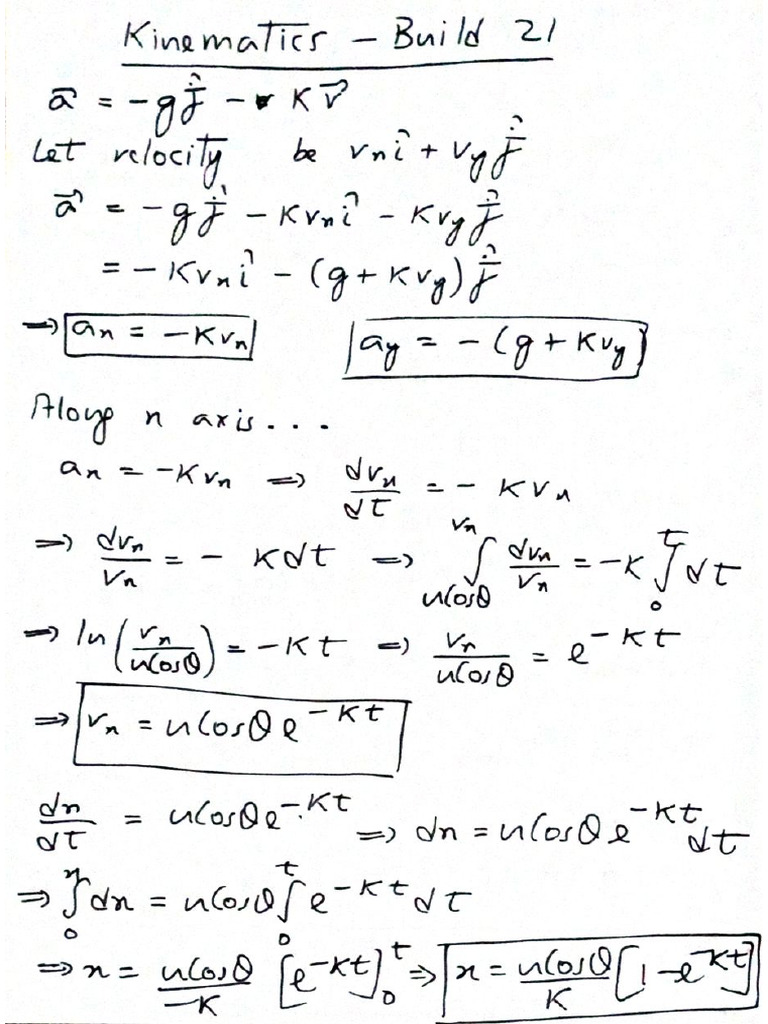 Kinematics – Build 21
a⃗ = -gĵ - Kv⃗
Let velocity be vxî + vyĵ
a⃗ = -gĵ - Kvxî - Kvyĵ
= -Kvxî - (g + Kvy)ĵ
⇒ ax = -Kvx    ay = -(g + Kvy)
Along x axis...
ax = -Kvx ⇒ dvx/dt = -Kvx
⇒ dvx/vx = -Kdt ⇒ ∫_{uCosθ}^{vx} dvx/vx = -K ∫_0^t dt
⇒ ln(vx/uCosθ) = -Kt ⇒ vx/uCosθ = e^{-Kt}
⇒ vx = uCosθ e^{-Kt}
dx/dt = uCosθ e^{-Kt} ⇒ dx = uCosθ e^{-Kt} dt
⇒ ∫_0^x dx = uCosθ ∫_0^t e^{-Kt} dt
⇒ x = uCosθ/-K [e^{-Kt}]_0^t ⇒ x = uCosθ/K [1 - e^{-Kt}]